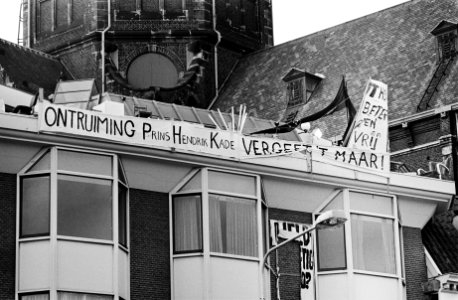 ONTRUIMING PRINS HENDRIK KADE VERGEET 'T MAAR!
IK
BEZET
EEN
VRIJ